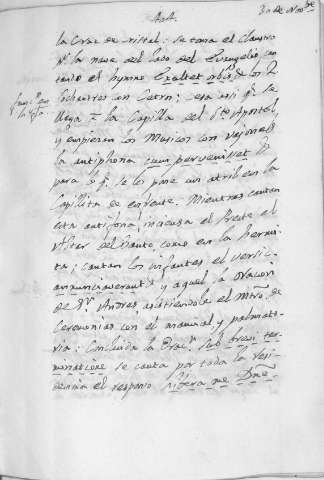 30 de Nov.bre
la Cruz de cristal: se toma el Claustro
p.r la nave del lado del Evangelio can
tando el hymno Exaltet orbis los 2
Sochantres con Cetros; cera assi q.e se
llega a la Capilla del S.to Apostol,
y empiezan los Musicos con
la antiphona cum pervenisset p.a
para lo q.e se les pone un atril en la
Capillita de enfrente. Mientras cantan
esta antifona inciensa el Preste el
Altar del Santo, como en la hermi-
ta; cantan los infantes el versic.
annunciaverunt y aquel la oracion
de S.n Andres asistiendole el Mro. de
Ceremonias con el manual, y palmato-
ria: Concluida la Orac.n sub brevi ter-
minatione se canta por toda la
el responso libera me Dne.